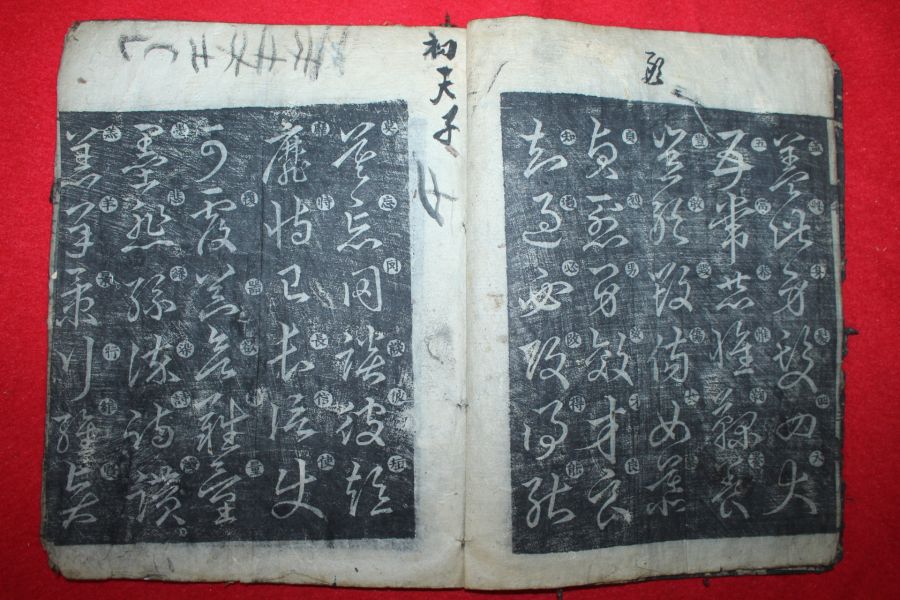 蓋此身髮四大
五常恭惟鞠養
豈敢毀傷女慕
貞烈男效才良
知過必改得能
初天子
莫忘罔談彼短
靡恃己長信使
可覆器欲難量
墨悲絲染詩讚
羔羊景行維賢